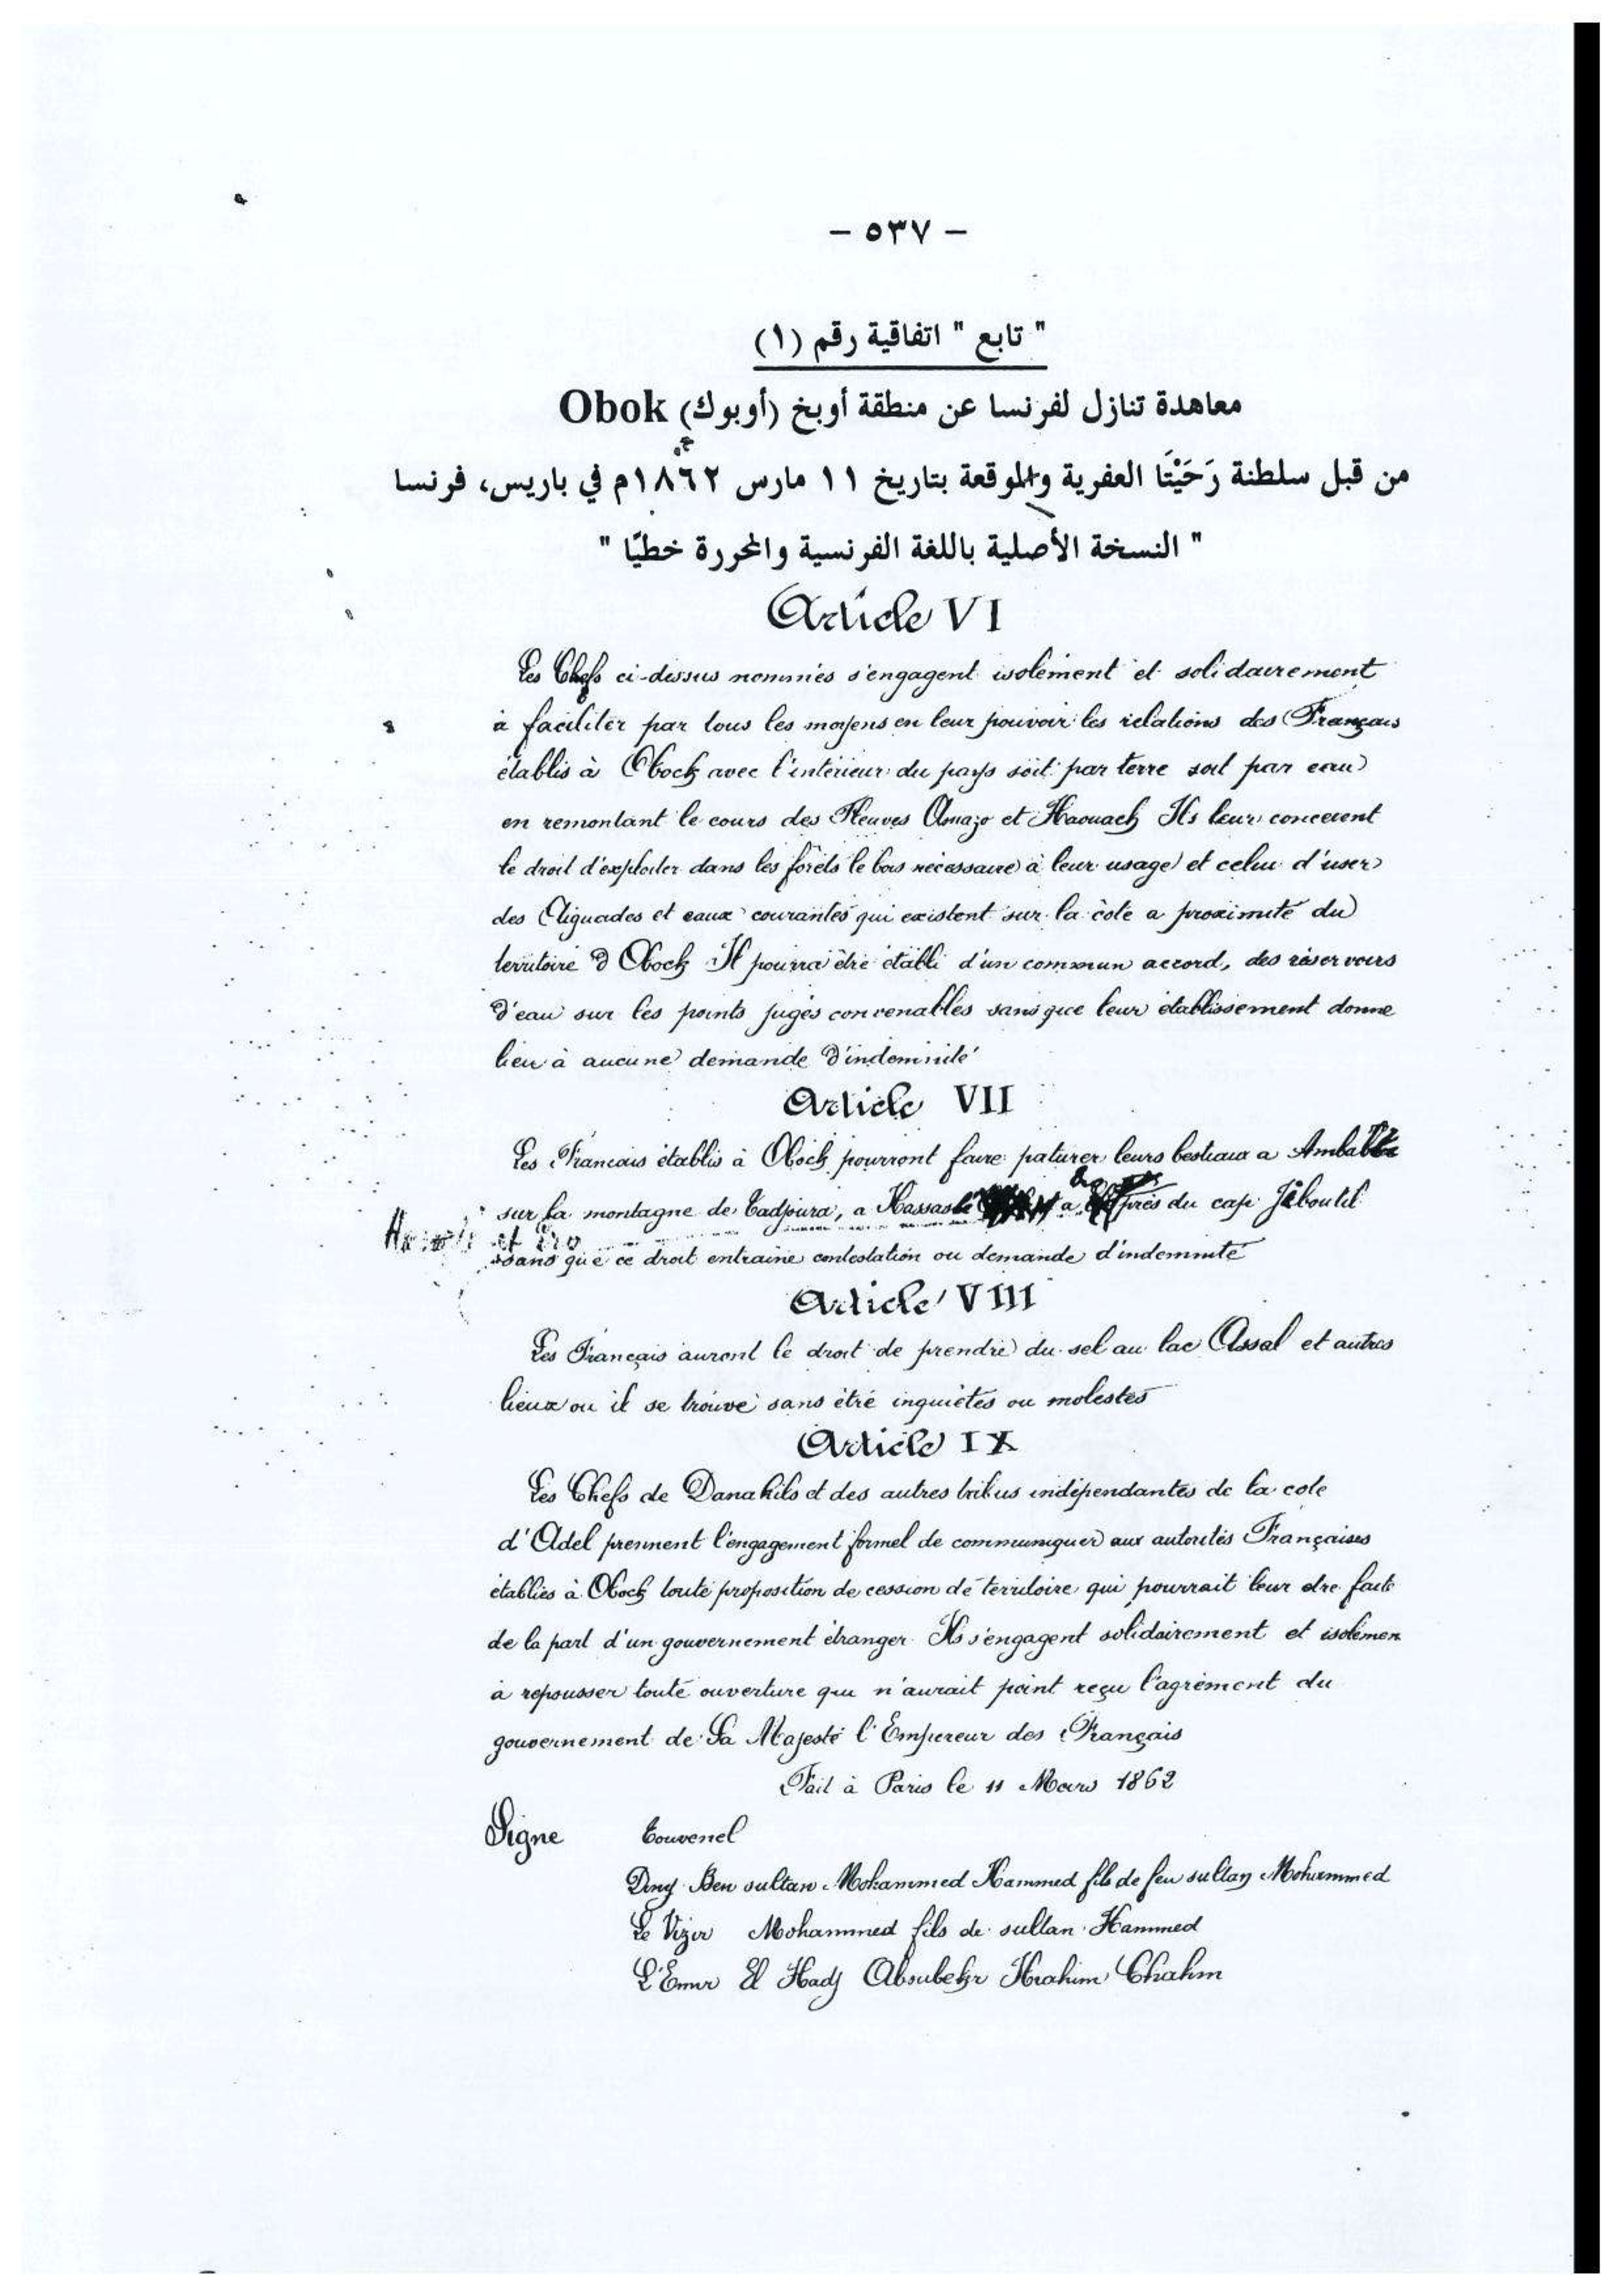 - ٥٣٧ -
" تابع " اتفاقية رقم (١)
معاهدة تنازل لفرنسا عن منطقة أوبخ (أوبوك) Obok
من قبل سلطنة رَحَيْتَا العفرية والموقعة بتاريخ ١١ مارس ١٨٦٢م في باريس، فرنسا
" النسخة الأصلية باللغة الفرنسية والمحررة خطيًا "
Article VI
Les Chefs ci-dessus nommés s'engagent isolément et solidairement
à faciliter par tous les moyens en leur pouvoir les relations des Français
établis à Obock avec l'intérieur du pays soit par terre soit par eau
en remontant le cours des Fleuves Anazo et Haouach Ils leur concèrent
le droit d'exploiter dans les forêts le bois nécessaire à leur usage et celui d'user
des Aiguades et eaux courantes qui existent sur la côte a proximité du
territoire d Obock Il pourra être établi d'un commun accord, des réservoirs
d'eau sur les points jugés convenables sans que leur établissement donne
lieu à aucune demande d'indemnité
Article VII
Les Francais établis à Obock pourront faire paturer leurs bestiaux a
sur la montagne de Tadjoura, a a près du cap Jiboutil
et Ero
sans que ce droit entraine contestation ou demande d'indemnité
Article VIII
Les Français auront le droit de prendre du sel au lac Assal et autres
lieux ou il se trouve sans être inquiétés ou molestés
Article IX
Les Chefs de Danakils et des autres tribus indépendantes de la cote
d'Adel prennent l'engagement formel de communiquer aux autorités Françaises
établies à Obock toute proposition de cession de territoire qui pourrait leur être faite
de la part d'un gouvernement étranger Ils s'engagent solidairement et isolémen
à repousser toute ouverture qui n'aurait point reçu l'agrément du
gouvernement de Sa Majesté l'Empereur des Français
Fait à Paris le 11 Mars 1862
Signe Touvenel
Diny Ben sultan Mohammed Hammed fils de feu sultan Mohammed
Le Vizir Mohammed fils de sultan Hammed
L'Emir El Hadj Aboubekr Ibrahim Chahm